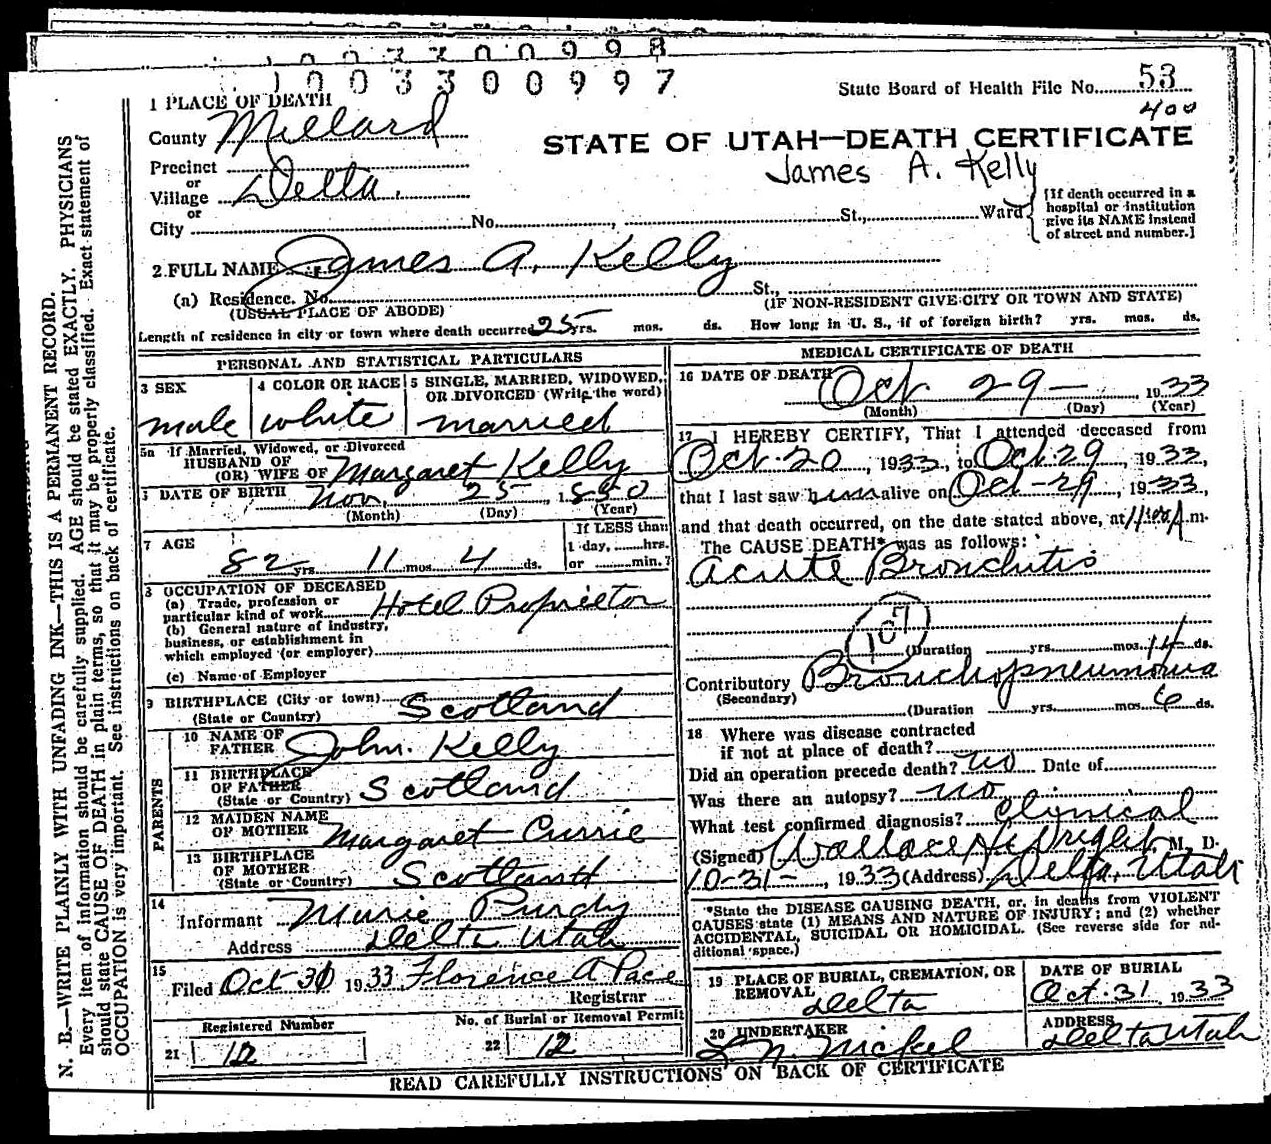 1003300998
1003300997
State Board of Health File No. 53
400
1 PLACE OF DEATH
County Millard
STATE OF UTAH—DEATH CERTIFICATE
James A. Kelly
Precinct
or
Village Delta.
or
City No. , St., Ward
[If death occurred in a
hospital or institution
give its NAME instead
of street and number.]
2 FULL NAME James A. Kelly
(a) Residence. No. St.,
(USUAL PLACE OF ABODE) (IF NON-RESIDENT GIVE CITY OR TOWN AND STATE)
Length of residence in city or town where death occurred 25 yrs. mos. ds. How long in U. S., if of foreign birth? yrs. mos. ds.
PERSONAL AND STATISTICAL PARTICULARS
3 SEX
male
4 COLOR OR RACE
white
5 SINGLE, MARRIED, WIDOWED,
OR DIVORCED (Write the word)
married
5a If Married, Widowed, or Divorced
HUSBAND OF
(OR) WIFE OF Margaret Kelly
DATE OF BIRTH Nov. 25 1850
(Month) (Day) (Year)
7 AGE
82 yrs. 11 mos. 4 ds.
If LESS than
1 day, hrs.
or min.?
8 OCCUPATION OF DECEASED
(a) Trade, profession or
particular kind of work Hotel Proprietor
(b) General nature of industry,
business, or establishment in
which employed (or employer)
(c) Name of Employer
9 BIRTHPLACE (City or town)
(State or Country) Scotland
PARENTS
10 NAME OF
FATHER John. Kelly
11 BIRTHPLACE
OF FATHER
(State or Country) Scotland
12 MAIDEN NAME
OF MOTHER Margaret Currie
13 BIRTHPLACE
OF MOTHER
(State or Country) Scotland
14
Informant Purdy
Address Delta Utah
15
Filed Oct 31 1933 Florence A Pace
Registrar
Registered Number
21 12
No. of Burial or Removal Permit
22 12
MEDICAL CERTIFICATE OF DEATH
16 DATE OF DEATH
Oct 29— 1933
(Month) (Day) (Year)
17 I HEREBY CERTIFY, That I attended deceased from
Oct. 20, 1933, to Oct. 29, 1933,
that I last saw him alive on Oct-29, 1933,
and that death occurred, on the date stated above, at A.m.
The CAUSE DEATH* was as follows:
Acute Bronchitis
107
(Duration yrs. mos. 14 ds.
Contributory Bronchopneumonia
(Secondary)
(Duration yrs. mos. 6 ds.
18 Where was disease contracted
if not at place of death?
Did an operation precede death? no Date of
Was there an autopsy? no
What test confirmed diagnosis? Clinical
(Signed) Wallace Wright M. D.
10-31-, 1933 (Address) Delta, Utah
*State the DISEASE CAUSING DEATH, or, in deaths from VIOLENT
CAUSES state (1) MEANS AND NATURE OF INJURY; and (2) whether
ACCIDENTAL, SUICIDAL OR HOMICIDAL. (See reverse side for ad-
ditional space.)
19 PLACE OF BURIAL, CREMATION, OR
REMOVAL
Delta
DATE OF BURIAL
Oct. 31, 1933
20 UNDERTAKER
Nickel
ADDRESS
Delta Utah
READ CAREFULLY INSTRUCTIONS ON BACK OF CERTIFICATE
N. B.—WRITE PLAINLY WITH UNFADING INK—THIS IS A PERMANENT RECORD.
Every item of information should be carefully supplied. AGE should be stated EXACTLY. PHYSICIANS
should state CAUSE OF DEATH in plain terms, so that it may be properly classified. Exact statement of
OCCUPATION is very important. See instructions on back of certificate.